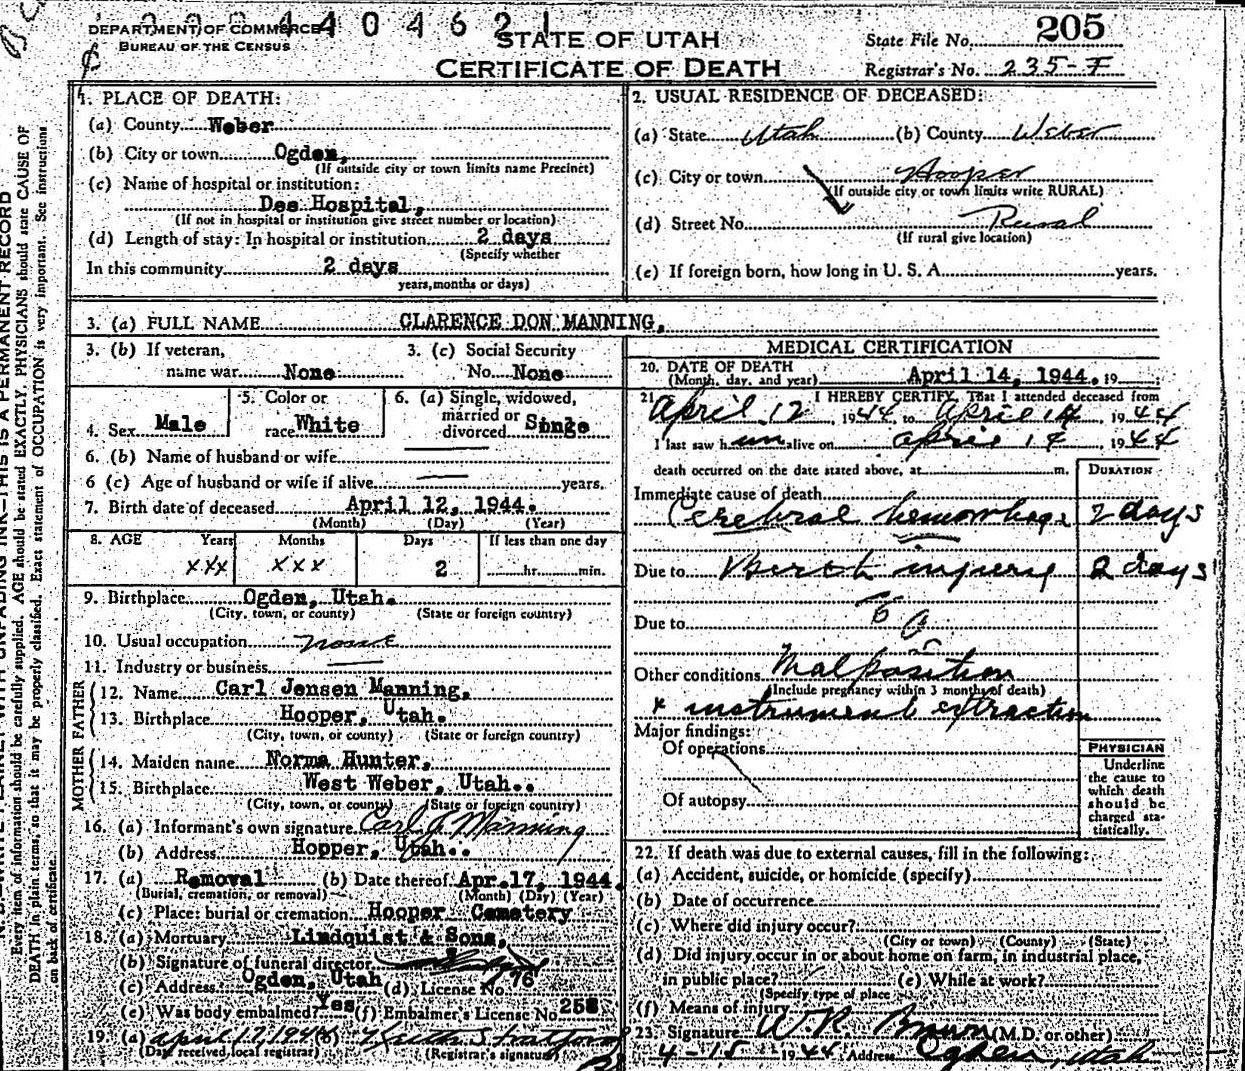 DEPARTMENT OF COMMERCE
BUREAU OF THE CENSUS
4404621
STATE OF UTAH
CERTIFICATE OF DEATH
State File No. 205
Registrar's No. 235-F
1. PLACE OF DEATH:
(a) County Weber
(b) City or town Ogden,
(If outside city or town limits name Precinct)
(c) Name of hospital or institution:
Dee Hospital,
(If not in hospital or institution give street number or location)
(d) Length of stay: In hospital or institution 2 days
(Specify whether
In this community 2 days
years, months or days)
2. USUAL RESIDENCE OF DECEASED:
(a) State Utah (b) County Weber
(c) City or town Hooper
(If outside city or town limits write RURAL)
(d) Street No. Rural
(If rural give location)
(e) If foreign born, how long in U. S. A. years.
3. (a) FULL NAME CLARENCE DON MANNING,
3. (b) If veteran, name war None
3. (c) Social Security No. None
4. Sex Male
5. Color or race White
6. (a) Single, widowed, married or divorced Singe
6. (b) Name of husband or wife
6 (c) Age of husband or wife if alive years.
7. Birth date of deceased April 12, 1944.
(Month) (Day) (Year)
8. AGE Years Months Days If less than one day
xxx xxx 2 hr. min.
9. Birthplace Ogden, Utah.
(City, town, or county) (State or foreign country)
10. Usual occupation none
11. Industry or business
FATHER
12. Name Carl Jensen Manning,
13. Birthplace Hooper, Utah.
(City, town, or county) (State or foreign country)
MOTHER
14. Maiden name Norma Hunter,
15. Birthplace West Weber, Utah..
(City, town, or county) (State or foreign country)
16. (a) Informant's own signature Carl J Manning
(b) Address Hopper, Utah..
17. (a) Removal (b) Date thereof Apr.17, 1944.
(Burial, cremation, or removal) (Month) (Day) (Year)
(c) Place: burial or cremation Hooper Cemetery
18. (a) Mortuary Lindquist & Sons,
(b) Signature of funeral director
(c) Address Ogden, Utah (d) License No. 76
(e) Was body embalmed? Yes (f) Embalmer's License No. 258
19. (a) April 17, 1944 (b)
(Date received local registrar) (Registrar's signature)
MEDICAL CERTIFICATION
20. DATE OF DEATH
(Month, day, and year) April 14, 1944. 19
21. I HEREBY CERTIFY, That I attended deceased from
April 12, 1944, to April 14, 1944
I last saw him alive on April 14, 1944
death occurred on the date stated above, at m.
DURATION
Immediate cause of death
Cerebral hemorrhage 2 days
Due to Birth injury 2 days
Due to
Other conditions Malposition
(Include pregnancy within 3 months of death)
+ instrument extraction
Major findings:
Of operations
Of autopsy
PHYSICIAN
Underline
the cause to
which death
should be
charged sta-
tistically.
22. If death was due to external causes, fill in the following:
(a) Accident, suicide, or homicide (specify)
(b) Date of occurrence
(c) Where did injury occur?
(City or town) (County) (State)
(d) Did injury occur in or about home on farm, in industrial place,
in public place? (e) While at work?
(Specify type of place
(f) Means of injury
23. Signature W.R. Brown (M.D. or other)
4-15 1944 Address Ogden, Utah
THIS IS A PERMANENT RECORD
Every item of information should be carefully supplied. AGE should be stated EXACTLY. PHYSICIANS should state CAUSE OF
DEATH in plain terms, so that it may be properly classified. Exact statement of OCCUPATION is very important. See instructions
on back of certificate.